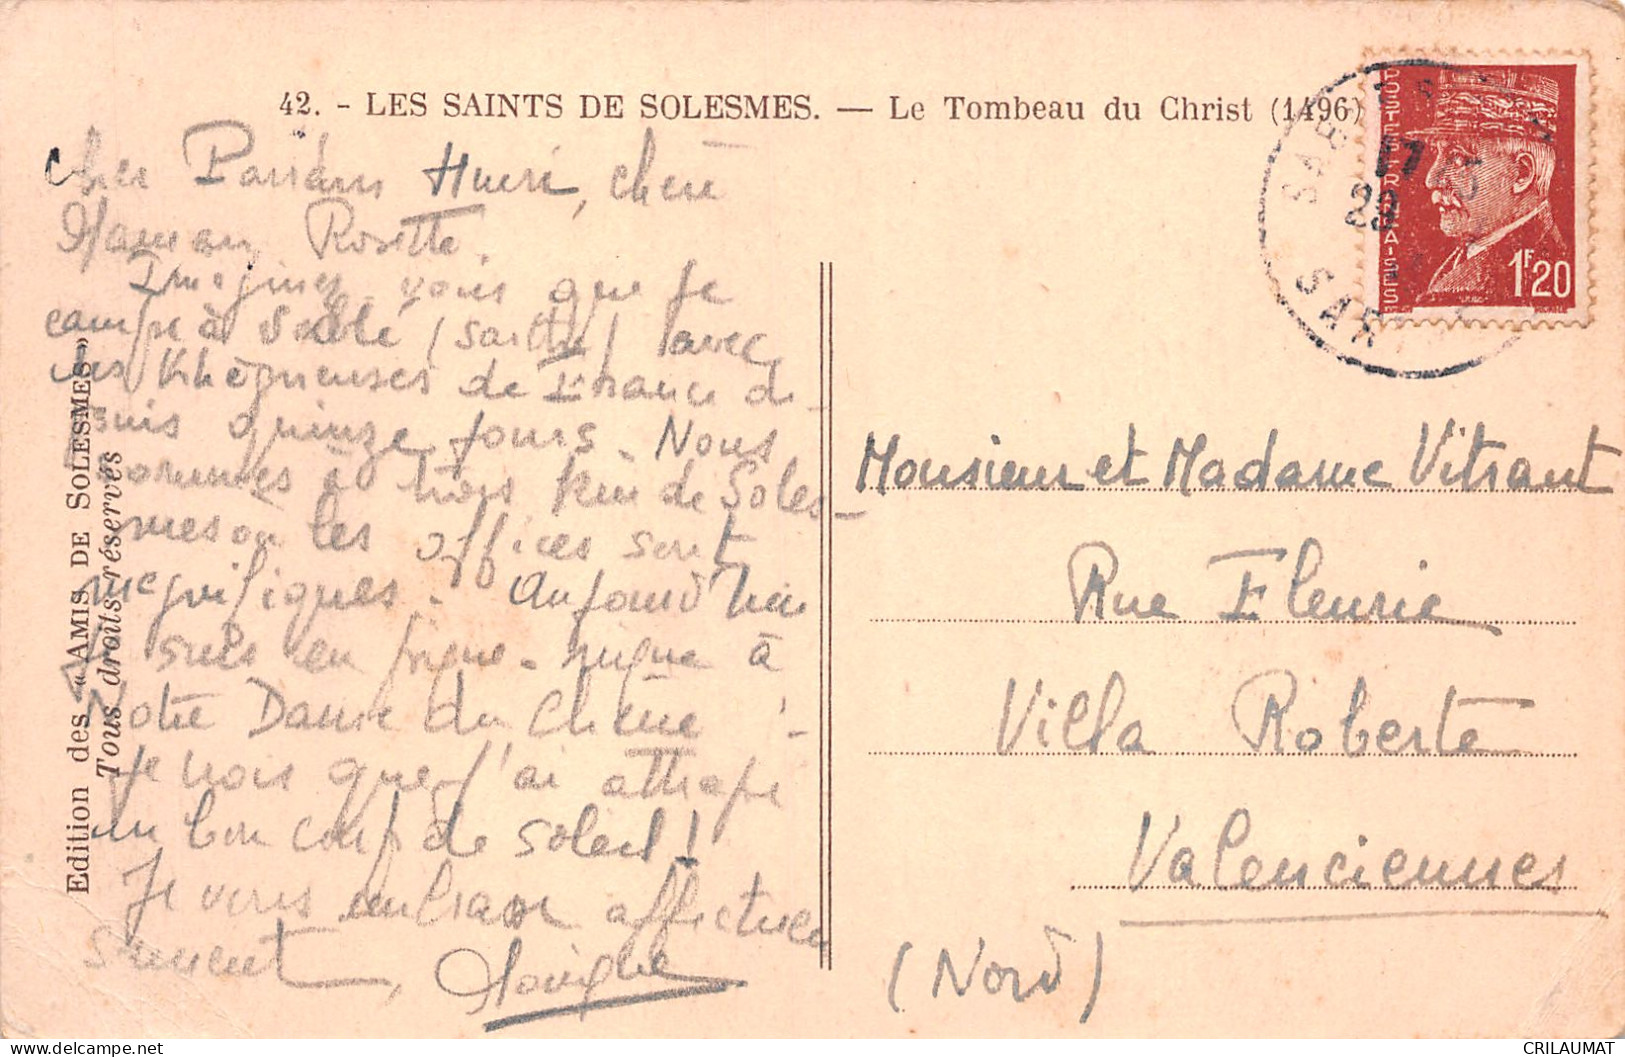 42. - LES SAINTS DE SOLESMES. — Le Tombeau du Christ (1496)
Cher Parrain Henri, chère
Maman Rosette.
Imaginez vous que je
campe à Sablé (Sarthe) avec
de France de-
puis quinze jours. Nous
sommes à trois km de Soles-
mes où les offices sont
magnifiques. Aujourd'hui
je suis en pique-nique à
Notre Dame du Chêne !
Je crois que j'ai attrapé
un bon coup de soleil !
Je vous embrasse affectueu
sement,
Edition des "AMIS DE SOLESMES"
Tous droits réservés
POSTES FRANÇAISES
1F20
SAR
17
29
Monsieur et Madame Vitrant
Rue Fleurie
Villa Roberte
Valenciennes
(Nord)
CRILAUMAT